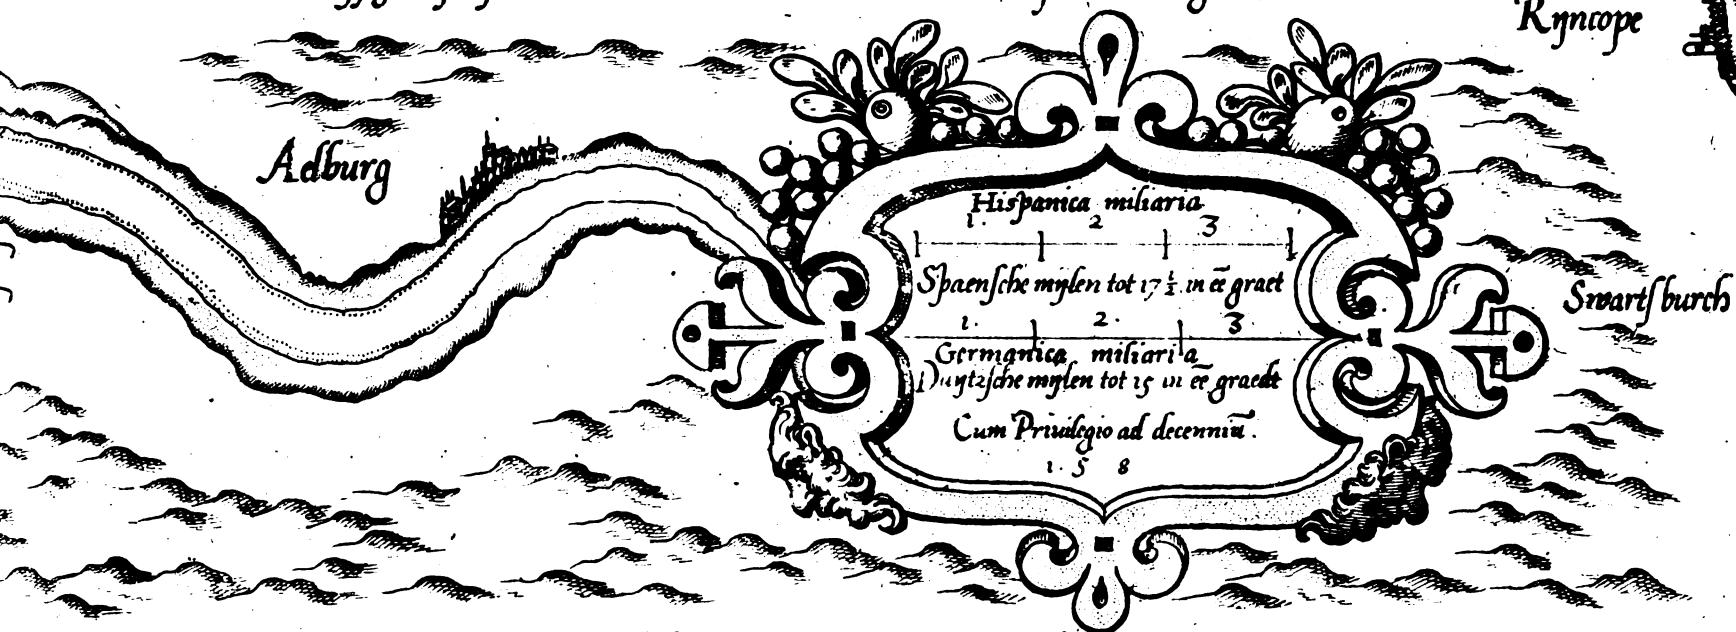 Rijncope
Adburg
Hispanica miliaria
1. 2 3
Spaensche mijlen tot 17 ½ in eē graet
Swartsburch
1. 2. 3
Germanica miliaria
Duytzsche mijlen tot 15 in eē graedt
Cum Priuilegio ad decenniū.
1. 5 8